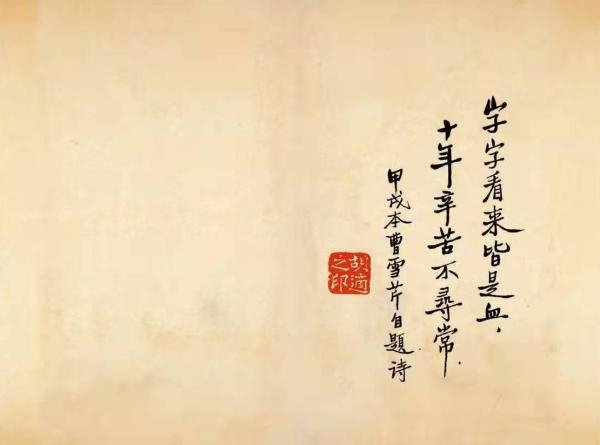 字字看来皆是血，
十年辛苦不尋常.
甲戌本曹雪芹自题诗
胡適之印